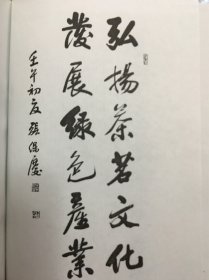 弘揚茶茗文化
發展緑色產業
壬午初夏 張保慶